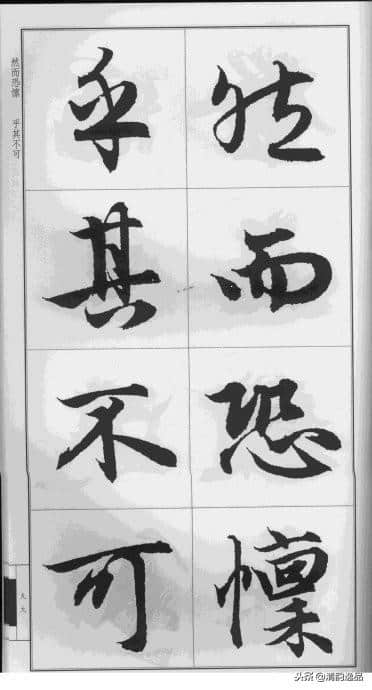 然而恐懔
乎其不可
然而恐懔 乎其不可
头条@清韵逸品